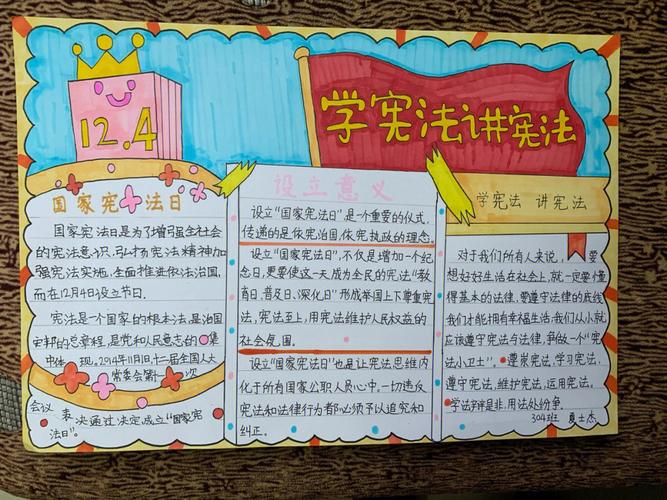 12.4
学宪法讲宪法
国家宪法日
国家宪法日是为了增强全社会
的宪法意识,弘扬宪法精神加
强宪法实施,全面推进依法治国,
而在12月4日设立节日.
宪法是一个国家的根本法,是治国
安邦的总章程,是党和人民意志的集
中体现,2014年11月1日,十二届全国人大
常委会第十 次
会议 表决通过决定成立“国家宪
法日”。
设立意义
设立“国家宪法日”,是一个重要的仪式,
传递的是依宪治国,依宪执政的理念.
设立“国家宪法日”,不仅是增加一个纪
念日,更要使这一天成为全民的宪法“教
育日、普及日、深化日”形成举国上下尊重宪
法,宪法至上,用宪法维护人民权益的
社会氛围.
设立“国家宪法日”也是让宪法思维内
化于所有国家公职人员心中,一切违反
宪法和法律行为都必须予以追究和
纠正.
学宪法 讲宪法
对于我们所有人来说,要
想好好生活在社会上,就一定要懂
得基本的法律,要遵守法律的底线
我们才能拥有幸福生活,我们从小就
应该遵守宪法与法律,争做一个“宪
法小卫士”。尊崇宪法,学习宪法,
遵守宪法,维护宪法,运用宪法。
学法辩是非,用法处纷争。
304班 夏士杰